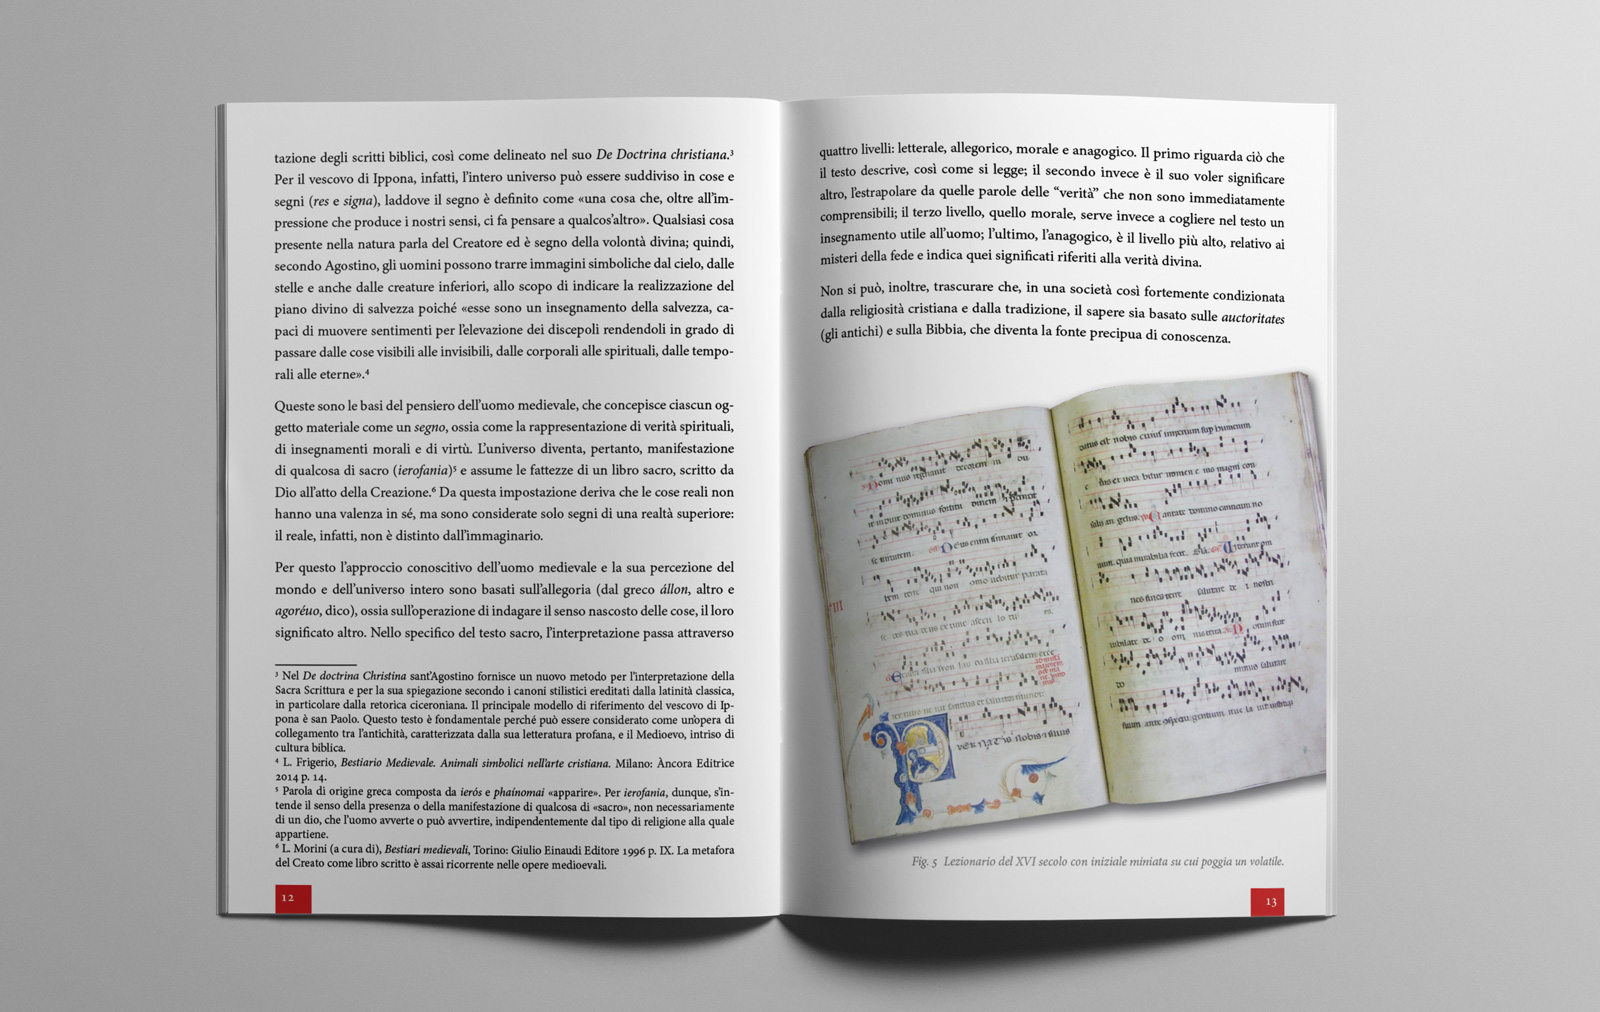 tazione degli scritti biblici, così come delineato nel suo De Doctrina christiana.³
Per il vescovo di Ippona, infatti, l’intero universo può essere suddiviso in cose e
segni (res e signa), laddove il segno è definito come «una cosa che, oltre all’im-
pressione che produce i nostri sensi, ci fa pensare a qualcos’altro». Qualsiasi cosa
presente nella natura parla del Creatore ed è segno della volontà divina; quindi,
secondo Agostino, gli uomini possono trarre immagini simboliche dal cielo, dalle
stelle e anche dalle creature inferiori, allo scopo di indicare la realizzazione del
piano divino di salvezza poiché «esse sono un insegnamento della salvezza, ca-
paci di muovere sentimenti per l’elevazione dei discepoli rendendoli in grado di
passare dalle cose visibili alle invisibili, dalle corporali alle spirituali, dalle tempo-
rali alle eterne».⁴
Queste sono le basi del pensiero dell’uomo medievale, che concepisce ciascun og-
getto materiale come un segno, ossia come la rappresentazione di verità spirituali,
di insegnamenti morali e di virtù. L’universo diventa, pertanto, manifestazione
di qualcosa di sacro (ierofania)⁵ e assume le fattezze di un libro sacro, scritto da
Dio all’atto della Creazione.⁶ Da questa impostazione deriva che le cose reali non
hanno una valenza in sé, ma sono considerate solo segni di una realtà superiore:
il reale, infatti, non è distinto dall’immaginario.
Per questo l’approccio conoscitivo dell’uomo medievale e la sua percezione del
mondo e dell’universo intero sono basati sull’allegoria (dal greco állon, altro e
agoréuo, dico), ossia sull’operazione di indagare il senso nascosto delle cose, il loro
significato altro. Nello specifico del testo sacro, l’interpretazione passa attraverso
³ Nel De doctrina Christina sant’Agostino fornisce un nuovo metodo per l’interpretazione della
Sacra Scrittura e per la sua spiegazione secondo i canoni stilistici ereditati dalla latinità classica,
in particolare dalla retorica ciceroniana. Il principale modello di riferimento del vescovo di Ip-
pona è san Paolo. Questo testo è fondamentale perché può essere considerato come un’opera di
collegamento tra l’antichità, caratterizzata dalla sua letteratura profana, e il Medioevo, intriso di
cultura biblica.
⁴ L. Frigerio, Bestiario Medievale. Animali simbolici nell’arte cristiana. Milano: Àncora Editrice
2014 p. 14.
⁵ Parola di origine greca composta da ierós e phaínomai «apparire». Per ierofania, dunque, s’in-
tende il senso della presenza o della manifestazione di qualcosa di «sacro», non necessariamente
di un dio, che l’uomo avverte o può avvertire, indipendentemente dal tipo di religione alla quale
appartiene.
⁶ L. Morini (a cura di), Bestiari medievali, Torino: Giulio Einaudi Editore 1996 p. IX. La metafora
del Creato come libro scritto è assai ricorrente nelle opere medioevali.
12
quattro livelli: letterale, allegorico, morale e anagogico. Il primo riguarda ciò che
il testo descrive, così come si legge; il secondo invece è il suo voler significare
altro, l’estrapolare da quelle parole delle “verità” che non sono immediatamente
comprensibili; il terzo livello, quello morale, serve invece a cogliere nel testo un
insegnamento utile all’uomo; l’ultimo, l’anagogico, è il livello più alto, relativo ai
misteri della fede e indica quei significati riferiti alla verità divina.
Non si può, inoltre, trascurare che, in una società così fortemente condizionata
dalla religiosità cristiana e dalla tradizione, il sapere sia basato sulle auctoritates
(gli antichi) e sulla Bibbia, che diventa la fonte precipua di conoscenza.
Fig. 5 Lezionario del XVI secolo con iniziale miniata su cui poggia un volatile.
13